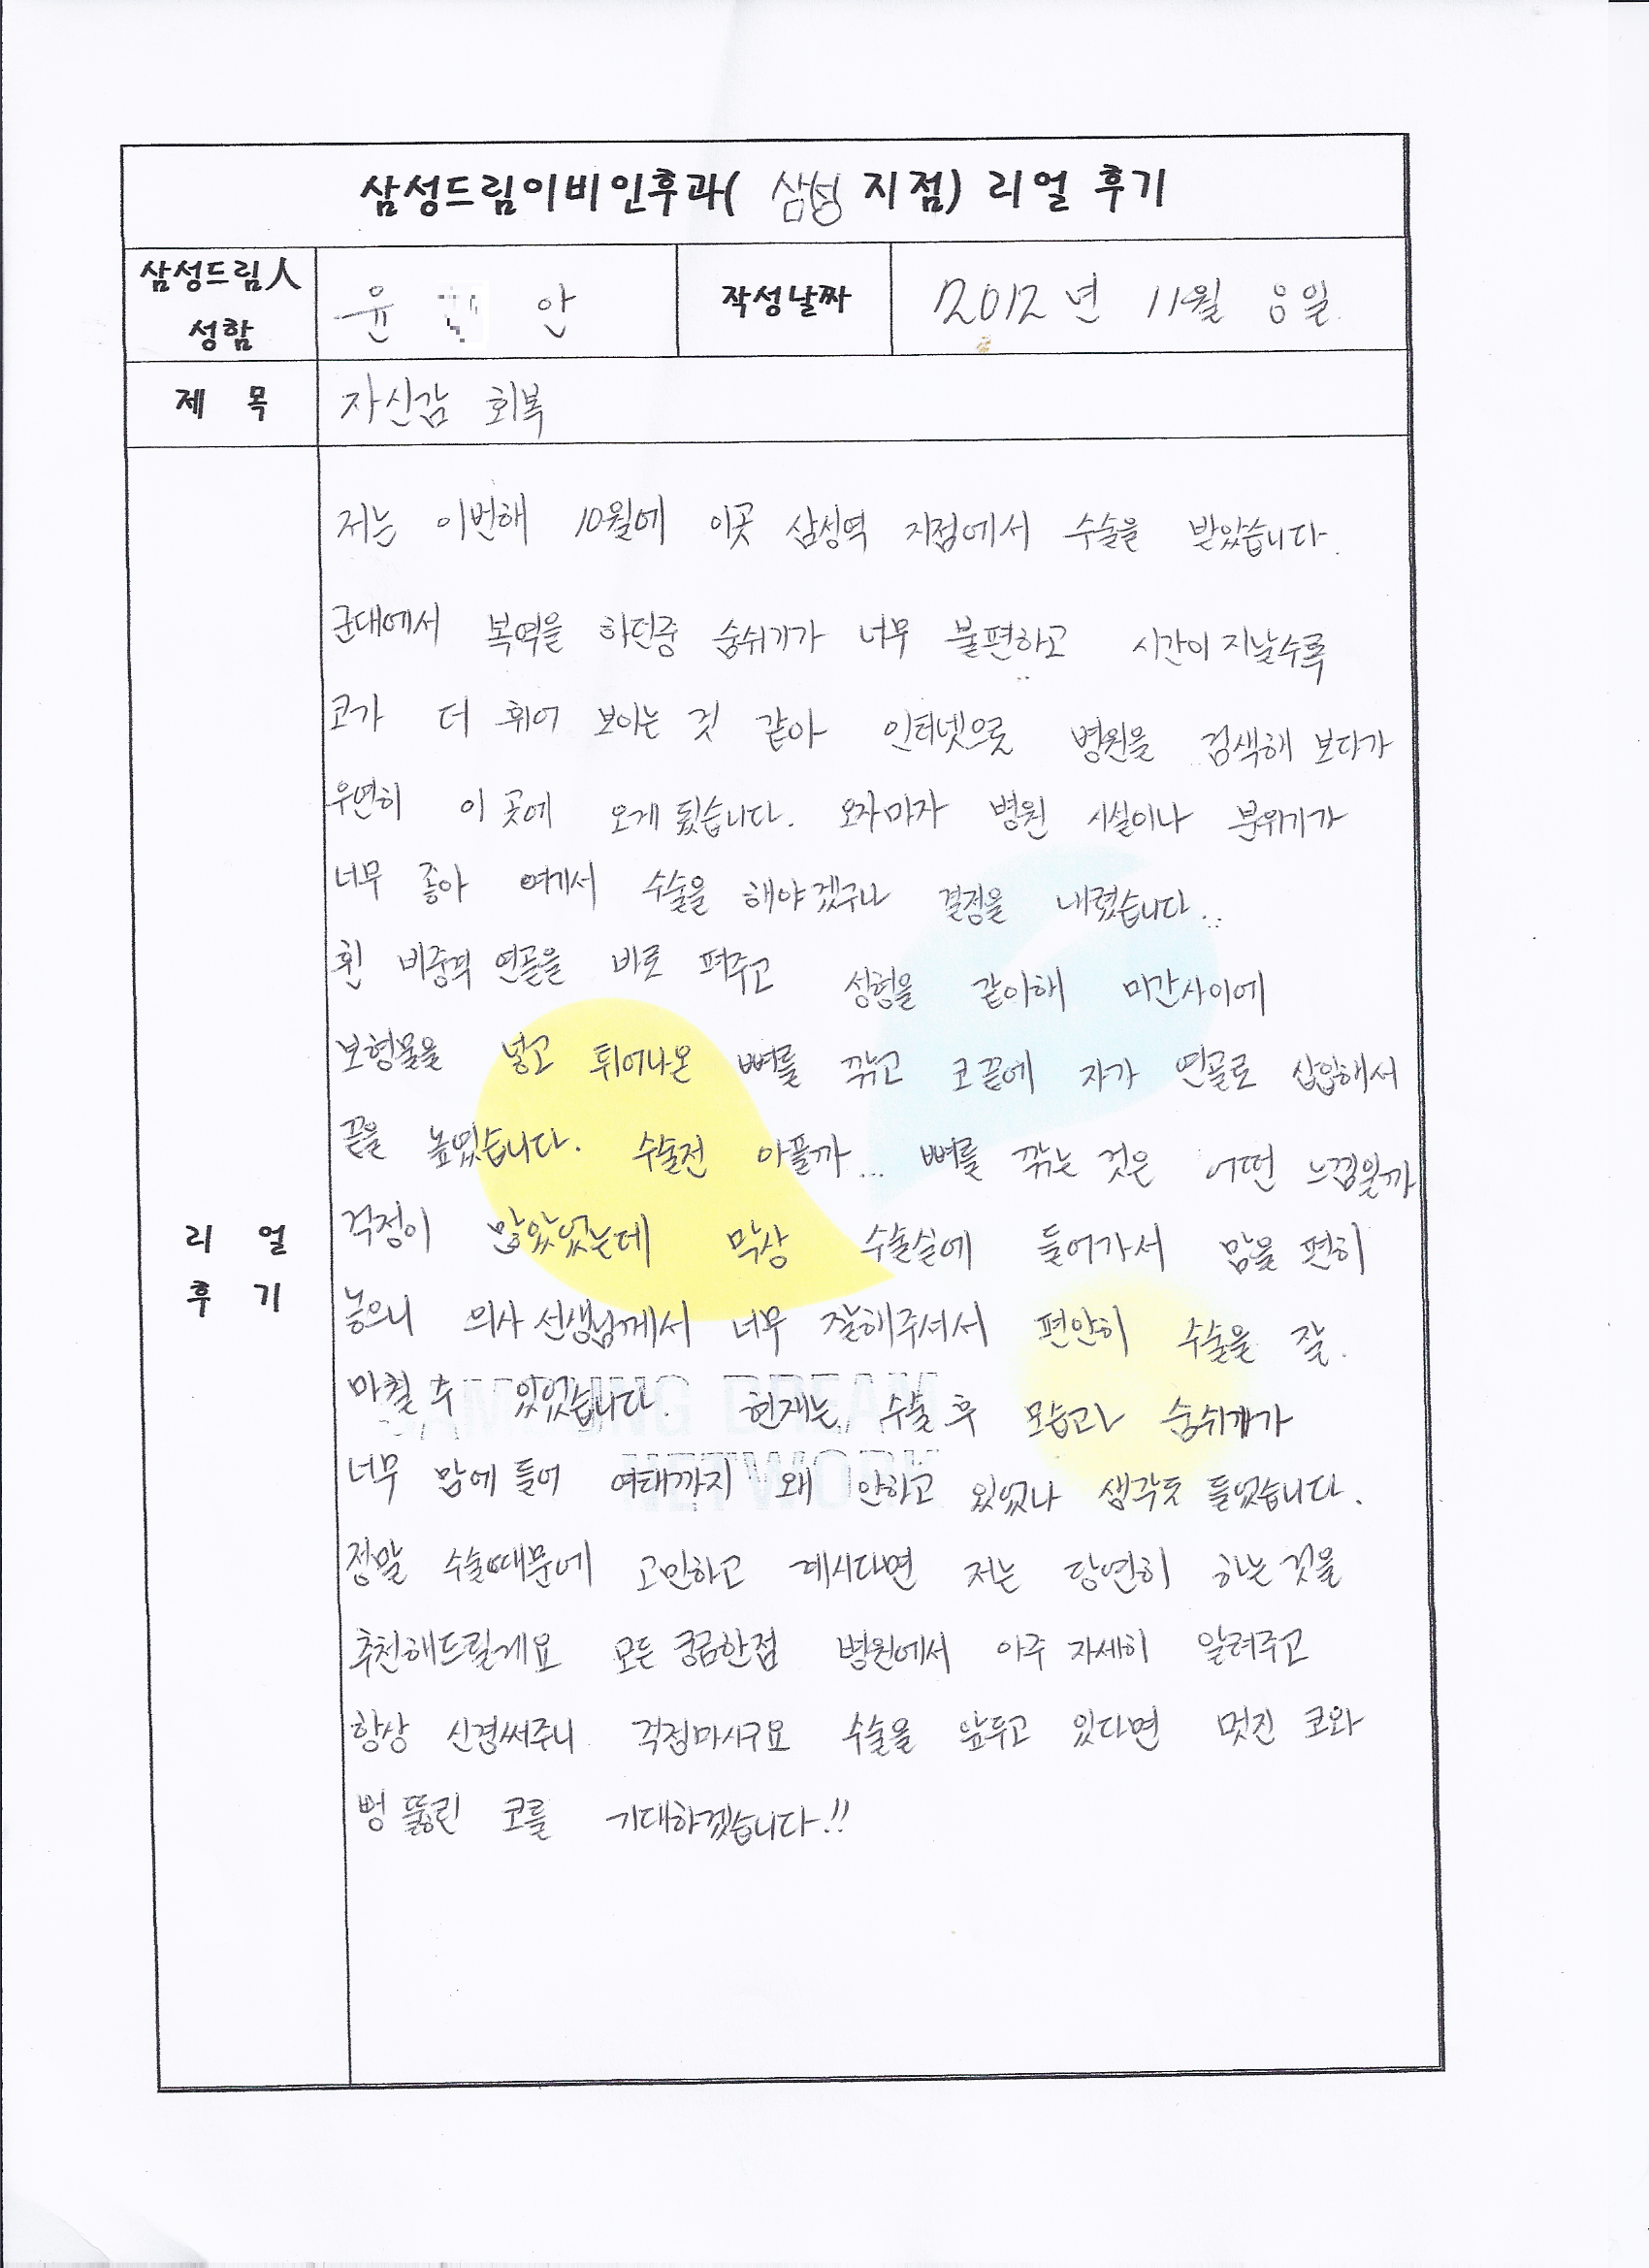 삼성드림이비인후과( 삼성 지점) 리얼 후기
삼성드림人 성함 윤 안 작성날짜 2012년 11월 8일
제 목 자신감 회복
저는 이번해 10월에 이곳 삼성역 지점에서 수술을 받았습니다.
군대에서 복역을 하던중 숨쉬기가 너무 불편하고 시간이 지날수록
코가 더 휘어 보이는 것 같아 인터넷으로 병원을 검색해 보다가
우연히 이 곳에 오게 됬습니다. 오자마자 병원 시설이나 분위기가
너무 좋아 여기서 수술을 해야겠구나 결정을 내렸습니다..
휜 비중격 연골을 바로 펴주고 성형을 같이해 미간사이에
보형물을 넣고 튀어나온 뼈를 깎고 코 끝에 자가 연골로 삽입해서
끝을 높였습니다. 수술전 아플까... 뼈를 깎는 것은 어떤 느낌일까
걱정이 많았었는데 막상 수술실에 들어가서 맘을 편히
놓으니 의사 선생님께서 너무 잘해주셔서 편안히 수술을 잘
마칠 수 있었습니다. 현재는 수술 후 모습과 숨쉬기가
너무 맘에 들어 여태까지 왜 안하고 있었나 생각도 들었습니다.
정말 수술때문에 고민하고 계시다면 저는 당연히 하는 것을
추천해드릴게요 모든 궁금한점 병원에서 아주 자세히 알려주고
항상 신경써주니 걱정마시구요 수술을 앞두고 있다면 멋진 코와
뻥 뚫린 코를 기대하겠습니다!!
리 얼
후 기
SAMSUNG DREAM
NETWORK